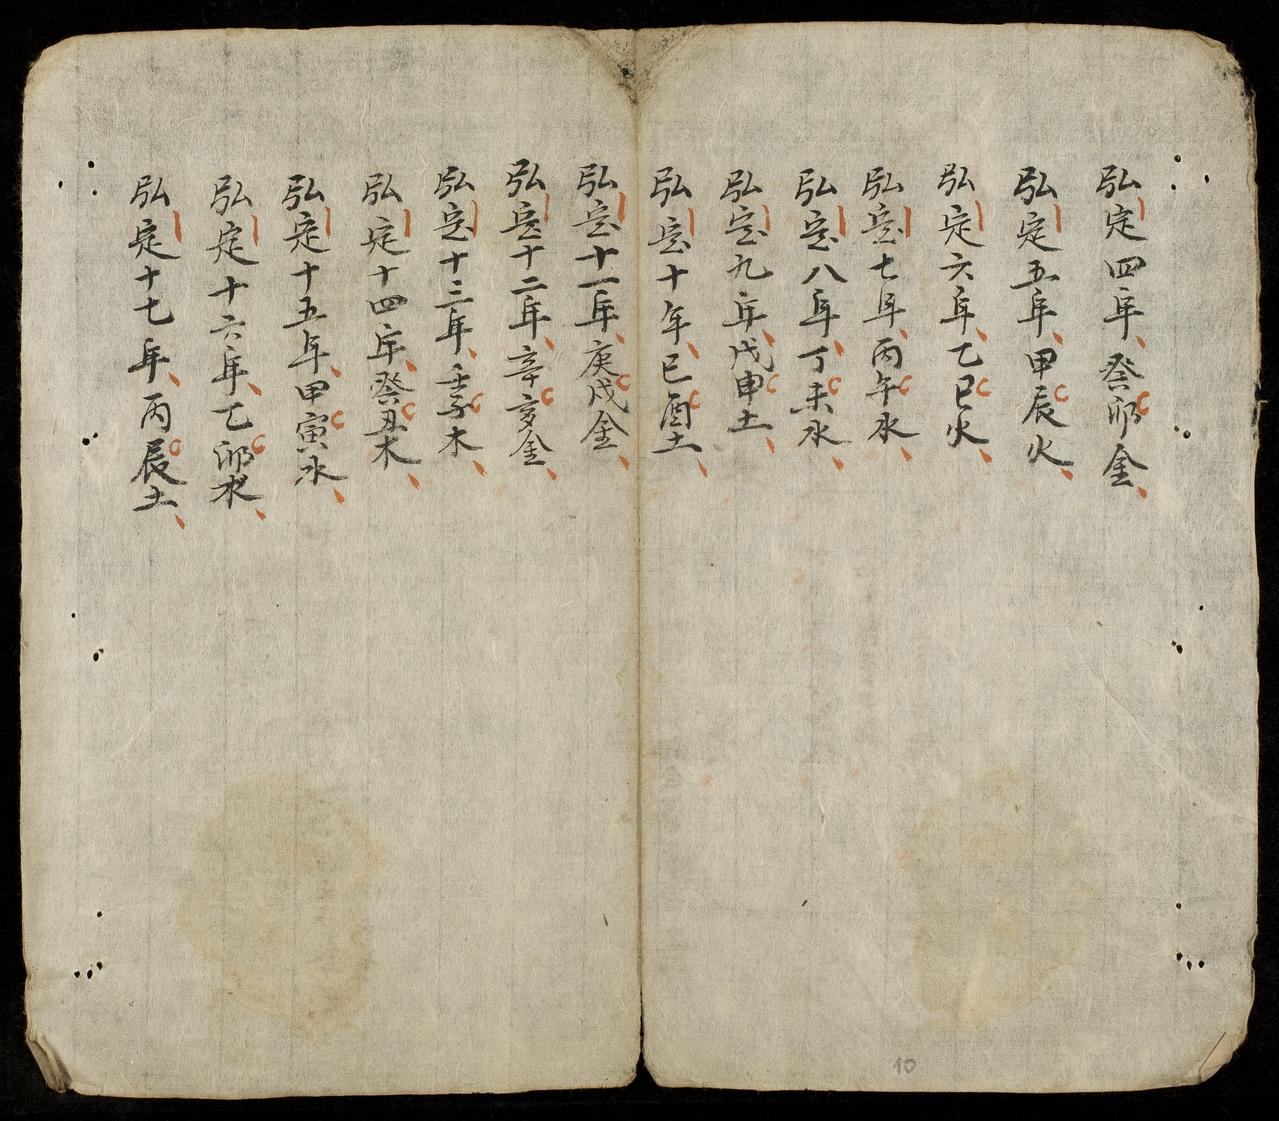 弘定四年癸卯金
弘定五年甲辰火
弘定六年乙巳火
弘定七年丙午水
弘定八年丁未水
弘定九年戊申土
弘定十年己酉土
弘定十一年庚戌金
弘定十二年辛亥金
弘定十三年壬子木
弘定十四年癸丑木
弘定十五年甲寅水
弘定十六年乙卯水
弘定十七年丙辰土
10